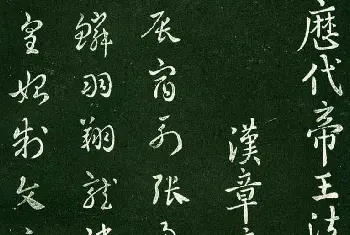 歷代帝王法
漢章
辰宿列張
鱗羽翔龍
皇始制文